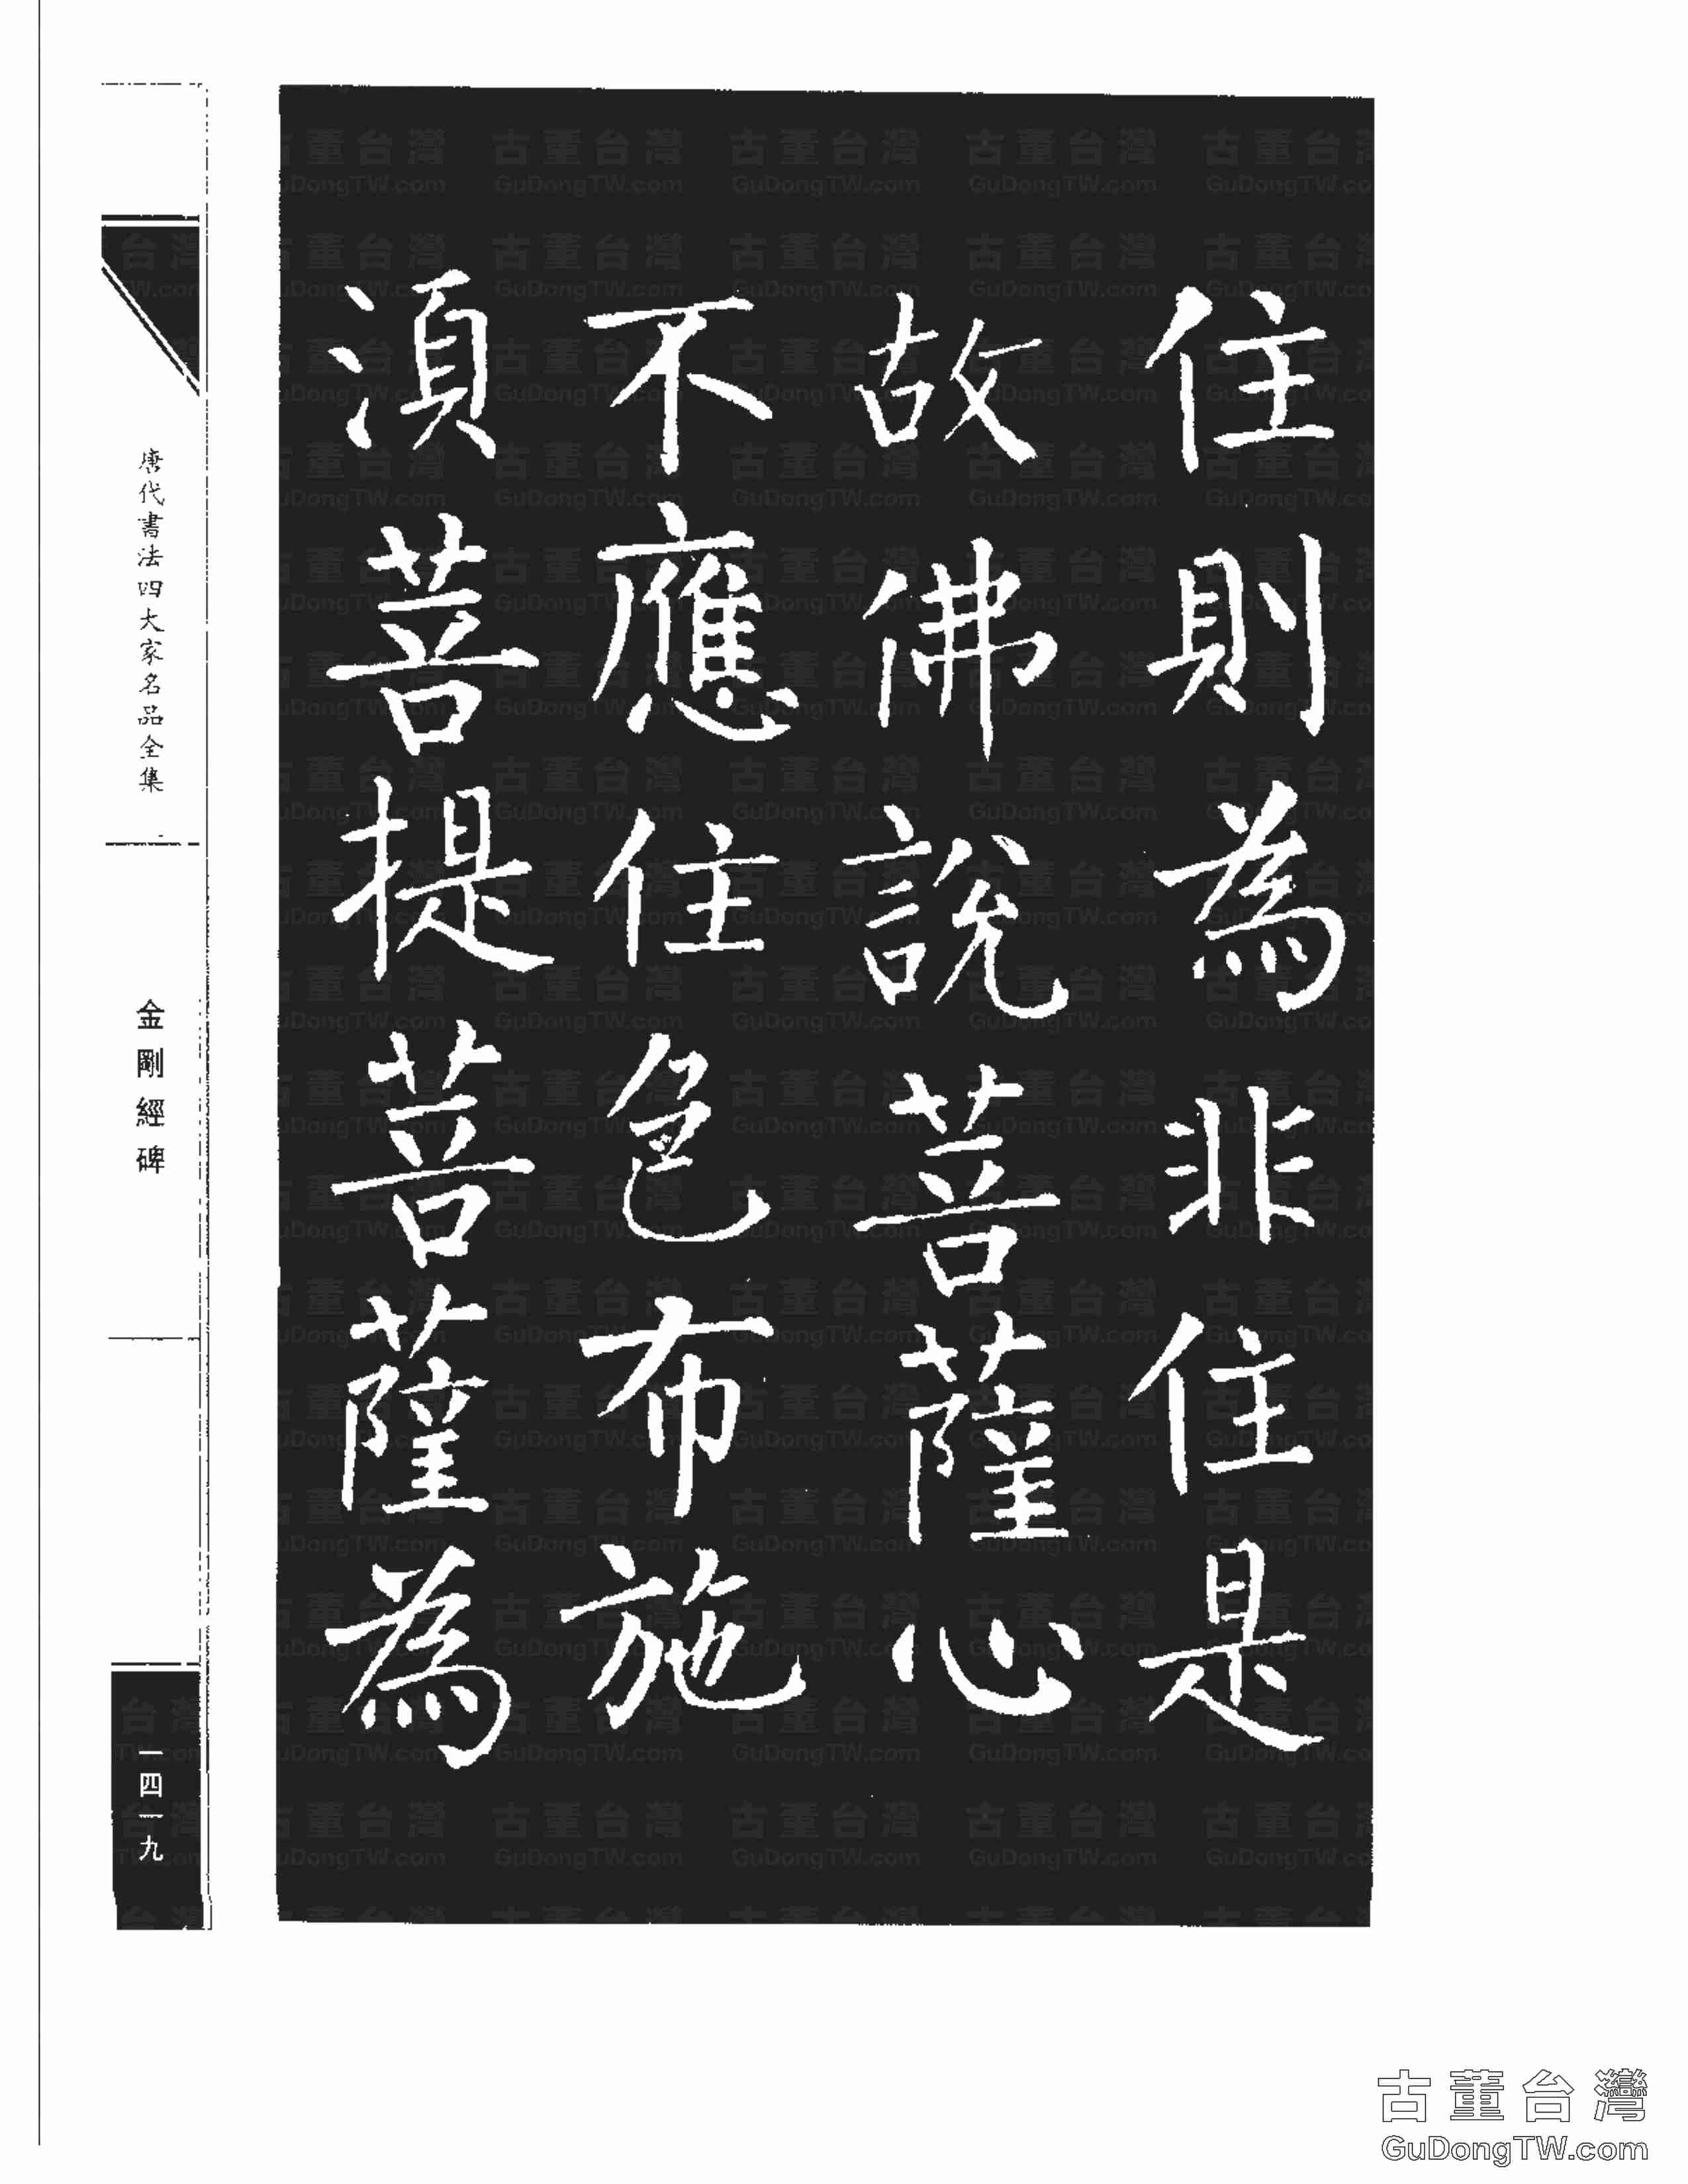 住則為非住是
故佛說菩薩心
不應住色布施
湏菩提菩薩為
唐代書法四大家名品全集
金剛經碑
一四一九
古董台灣
GuDongTW.com